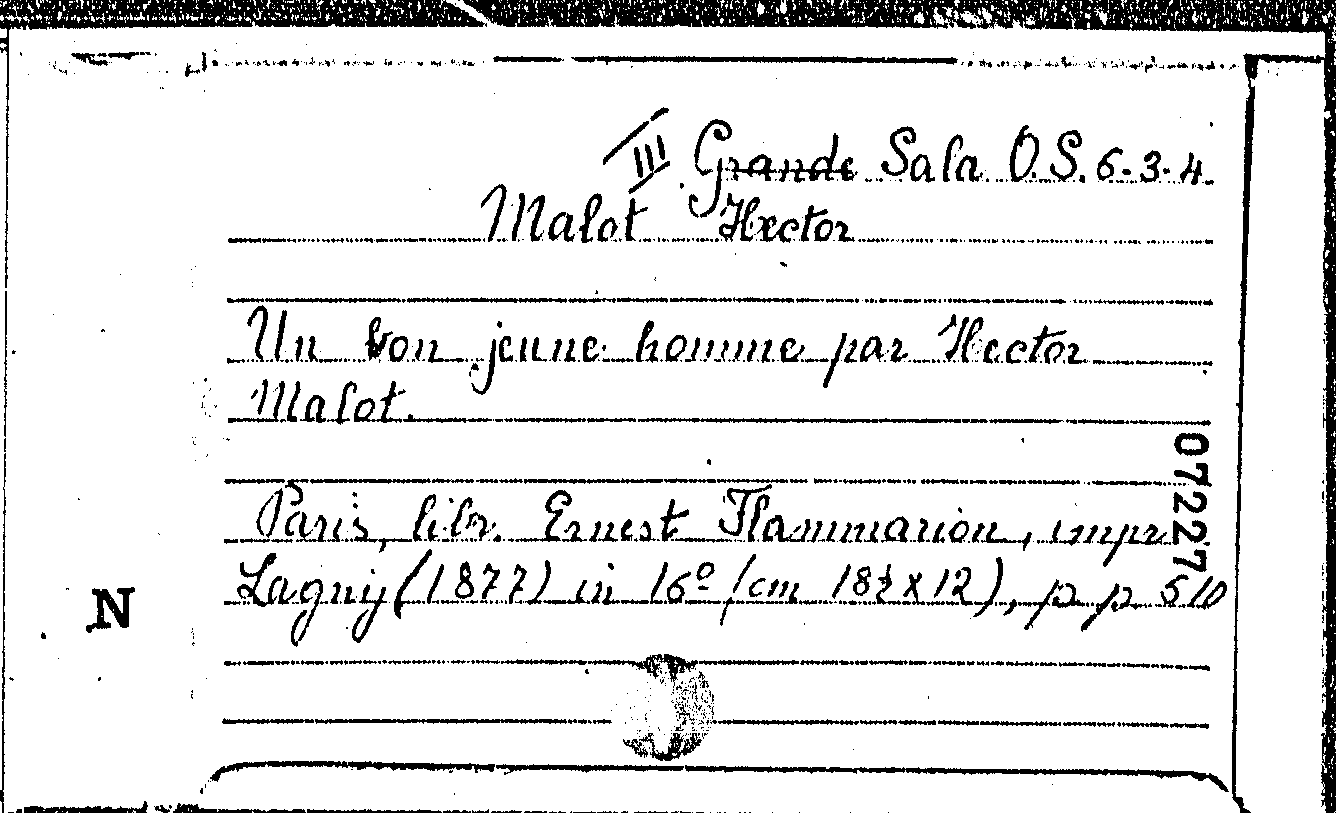 III Grande Sala O.S. 6-3-4
Malot Hector
Un bon jeune homme par Hector
Malot.
07227
Paris, libr. Ernest Flammarion, impr.
Lagny (1877) in 16º (cm 18½ x 12), p p 510
N